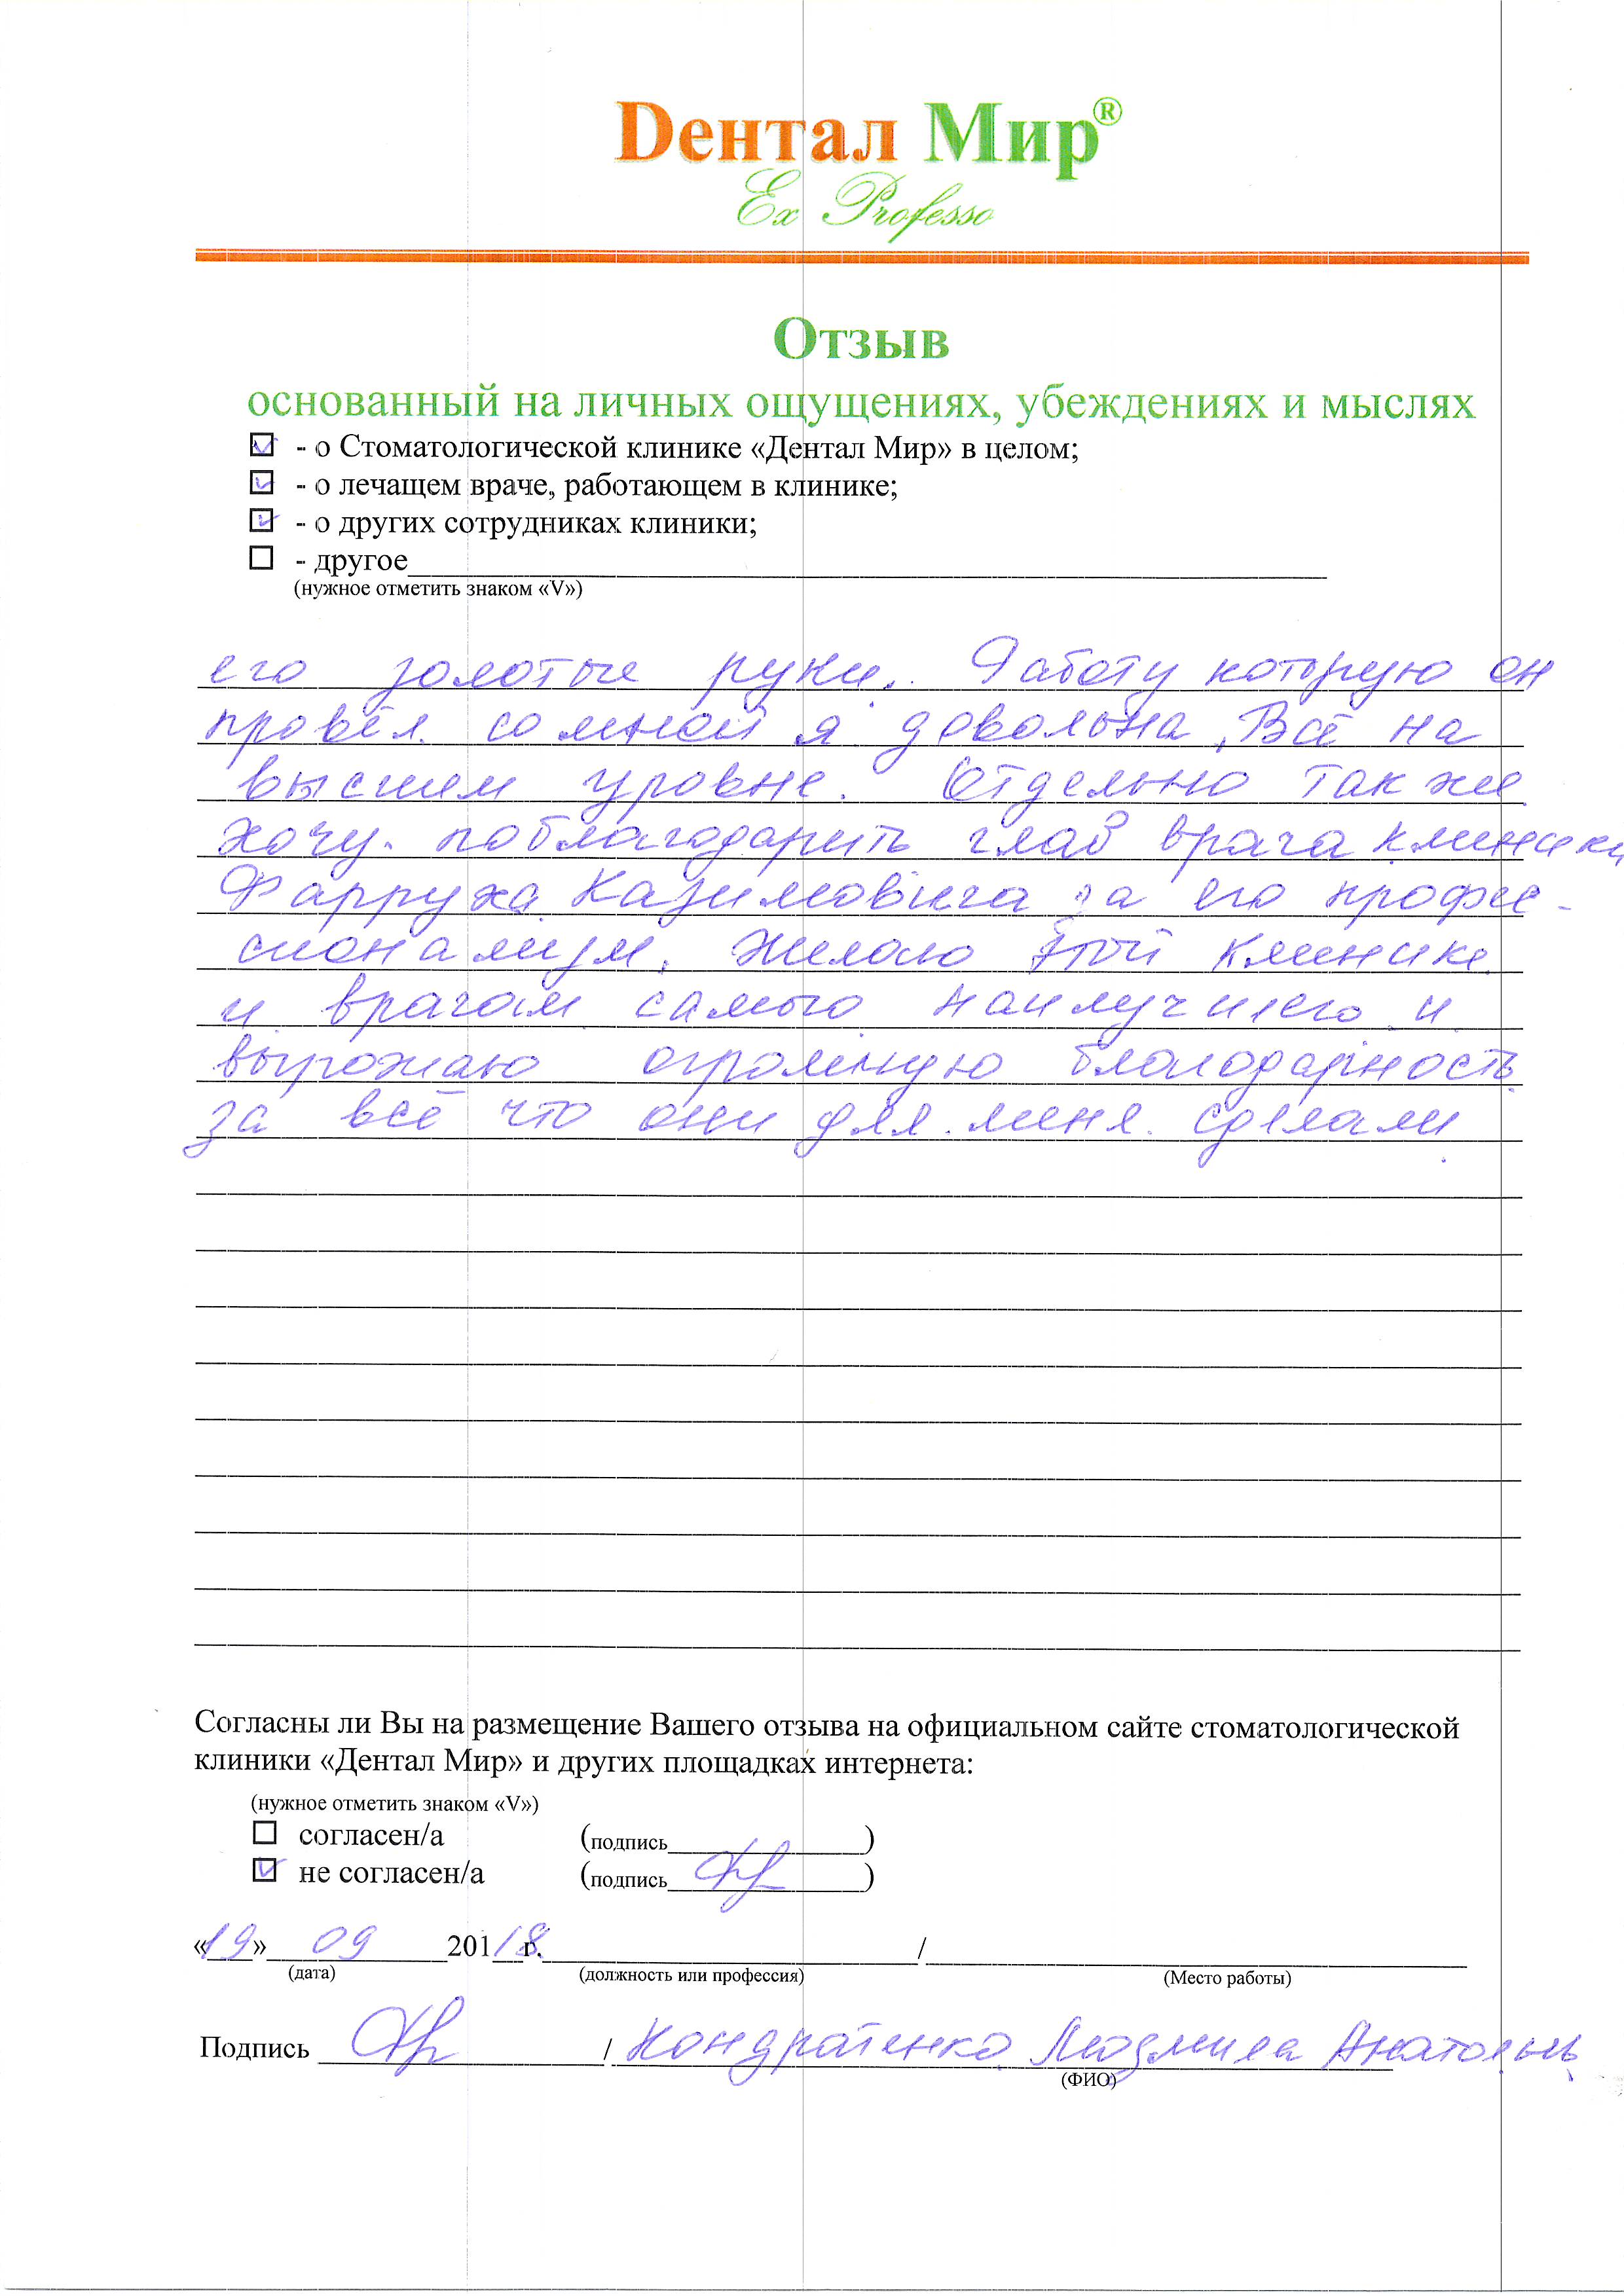 Dентал Мир®
Ex Professo
Отзыв
основанный на личных ощущениях, убеждениях и мыслях
☑ - о Стоматологической клинике «Дентал Мир» в целом;
☑ - о лечащем враче, работающем в клинике;
☑ - о других сотрудниках клиники;
☐ - другое
(нужное отметить знаком «V»)
его золотые руки. Работу которую он
провёл со мной я довольна. Всё на
высшем уровне. Отдельно так же
хочу поблагодарить глав врача клиники
Фарруха Казимовича за его профе-
сионализм. Желаю этой клинике
и врачам самого наилучшего и
вырожаю огромную благодарность
за всё что они для меня сделали
Согласны ли Вы на размещение Вашего отзыва на официальном сайте стоматологической
клиники «Дентал Мир» и других площадках интернета:
(нужное отметить знаком «V»)
☐ согласен/а (подпись )
☑ не согласен/а (подпись )
«19» 09 20118 г. /
(дата) (должность или профессия) (Место работы)
Подпись / Кондратенко Людмила Анатольь
(ФИО)